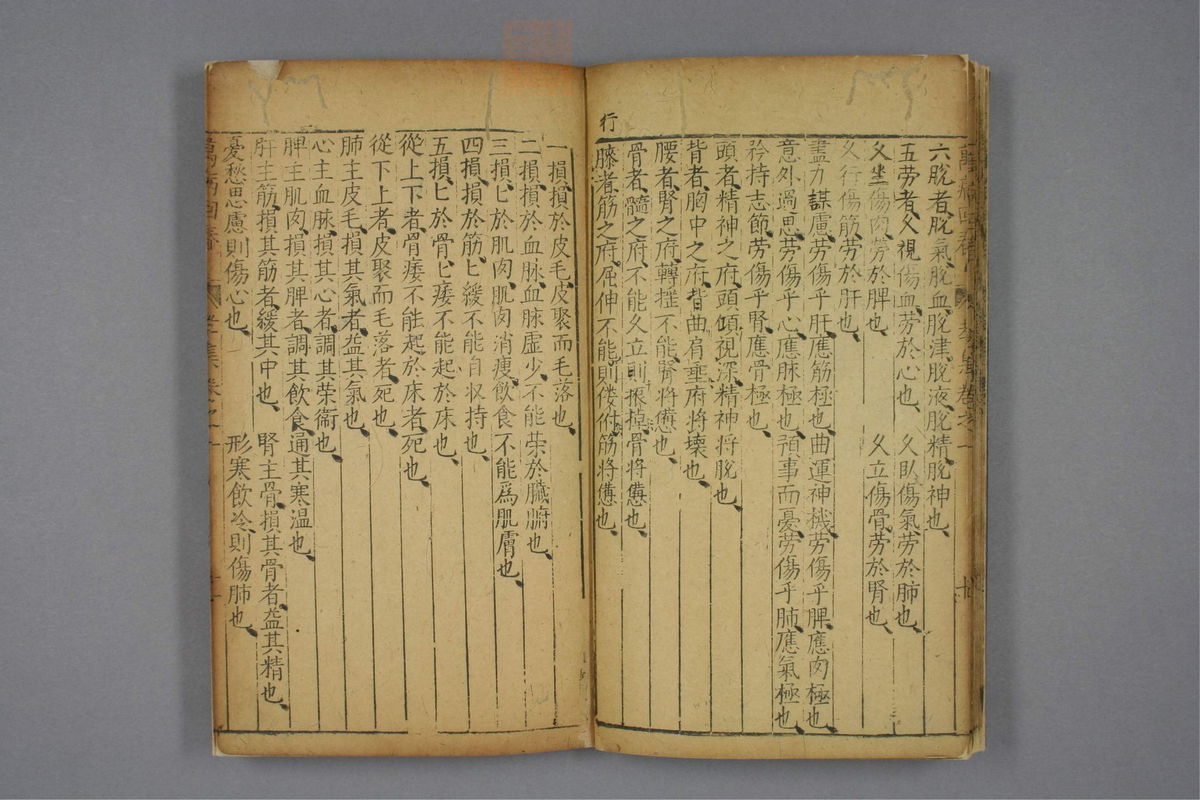 六脫者脫氣脫血脫津脫液脫精脫神也
五劳者久視傷血劳於心也 久臥傷氣劳於肺也
久坐傷肉劳於脾也 久立傷骨劳於腎也
久行傷筋劳於肝也
盡力謀慮劳傷乎肝應筋極也曲運神機劳傷乎脾應肉極也
意外過思劳傷乎心應脉極也預事而憂劳傷乎肺應氣極也
矜持志節劳傷乎腎應骨極也
頭者精神之府頭傾視深精神将脫也
背者胸中之府背曲肩垂府将壞也
腰者腎之府轉摇不能腎将憊也
骨者髓之府不能久立則振掉骨将憊也
行
膝者筋之府屈伸不能則僂俯筋将憊也
一損損於皮毛皮聚而毛落也
二損損於血脉血脉虚少不能荣於臟腑也
三損匕於肌肉肌肉消瘦飲食不能爲肌膚也
四損損於筋匕緩不能自収持也
五損匕於骨匕痿不能起於床也
從上下者骨痿不能起於床者死也
從下上者皮聚而毛落者死也
肺主皮毛損其氣者益其氣也
心主血脉損其心者調其荣衛也
脾主肌肉損其脾者調其飲食適其寒温也
肝主筋損其筋者緩其中也 腎主骨損其骨者益其精也
憂愁思慮則傷心也 形寒飲冷則傷肺也